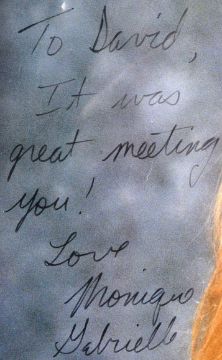 To David,
It was
great meeting
you!
Love
Monique
Gabrielle